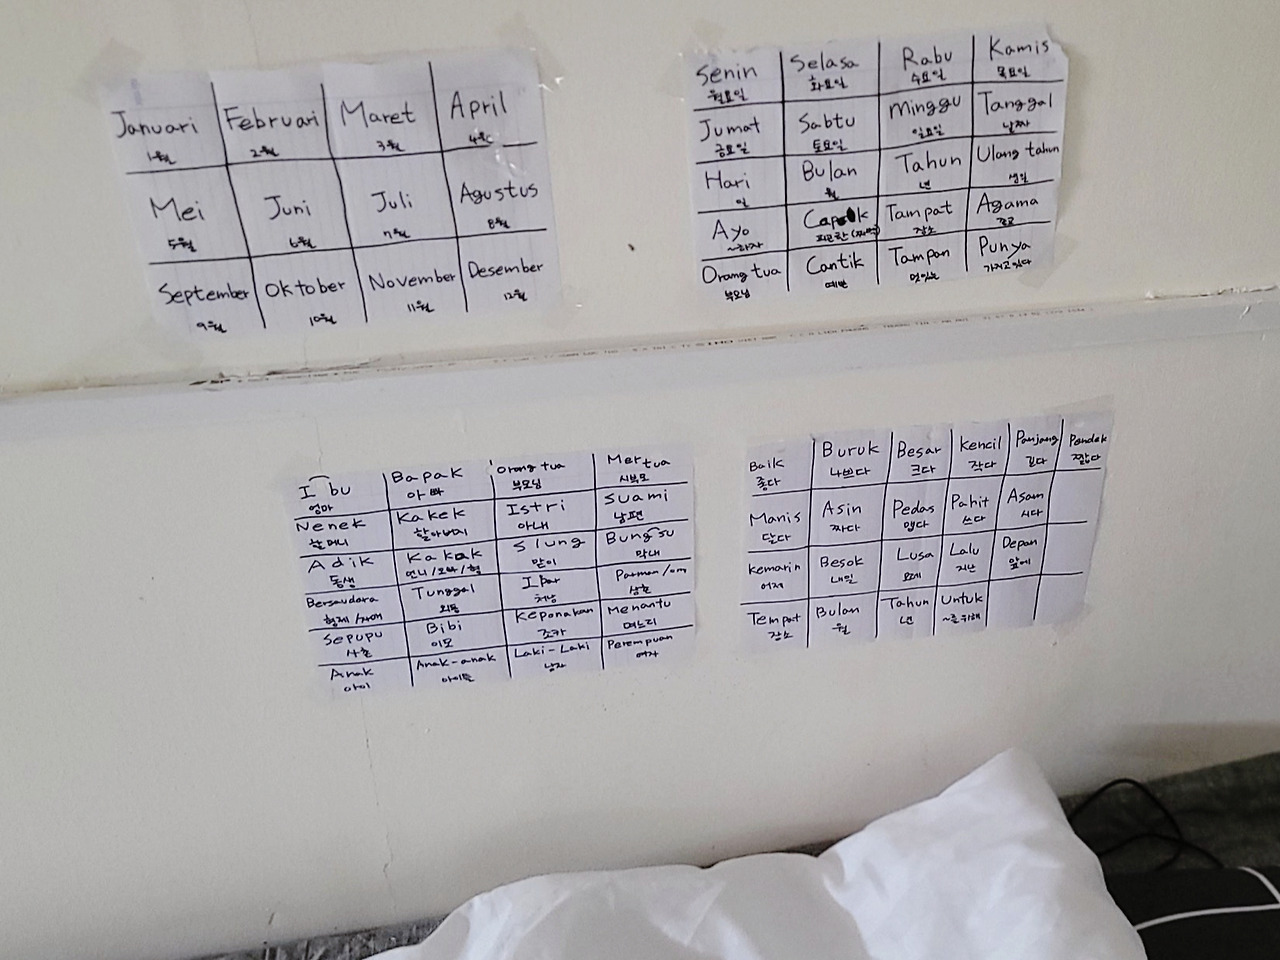 Januari Februari Maret April
1월 2월 3월 4월
Mei Juni Juli Agustus
5월 6월 7월 8월
September Oktober November Desember
9월 10월 11월 12월
Senin Selasa Rabu Kamis
월요일 화요일 수요일 목요일
Jumat Sabtu Minggu Tanggal
금요일 토요일 일요일 날짜
Hari Bulan Tahun Ulang tahun
일 월 년 생일
Ayo Capek Tampat Agama
~하자 피곤한 장소 종교
Orang tua Cantik Tampan Punya
부모님 예쁜 멋있는 가지고있다
Ibu Bapak Orang tua Mertua
엄마 아빠 부모님 시부모
Nenek Kakek Istri Suami
할머니 할아버지 아내 남편
Adik Kakak Slung Bungsu
동생 언니/오빠/형 맏이 막내
Bersaudara Tunggal Ipar Parman/om
형제/자매 외동 처남 삼촌
Sepupu Bibi Keponakan Menantu
사촌 이모 조카 며느리
Anak Anak-anak Laki-Laki Perempuan
아이 아이들 남자 여자
Baik Buruk Besar Kencil Panjang Pendek
좋다 나쁘다 크다 작다 길다 짧다
Manis Asin Pedas Pahit Asam
달다 짜다 맵다 쓰다 시다
Kemarin Besok Lusa Lalu Depan
어제 내일 모레 지난 앞에
Tempat Bulan Tahun Untuk
장소 월 년 ~를위해